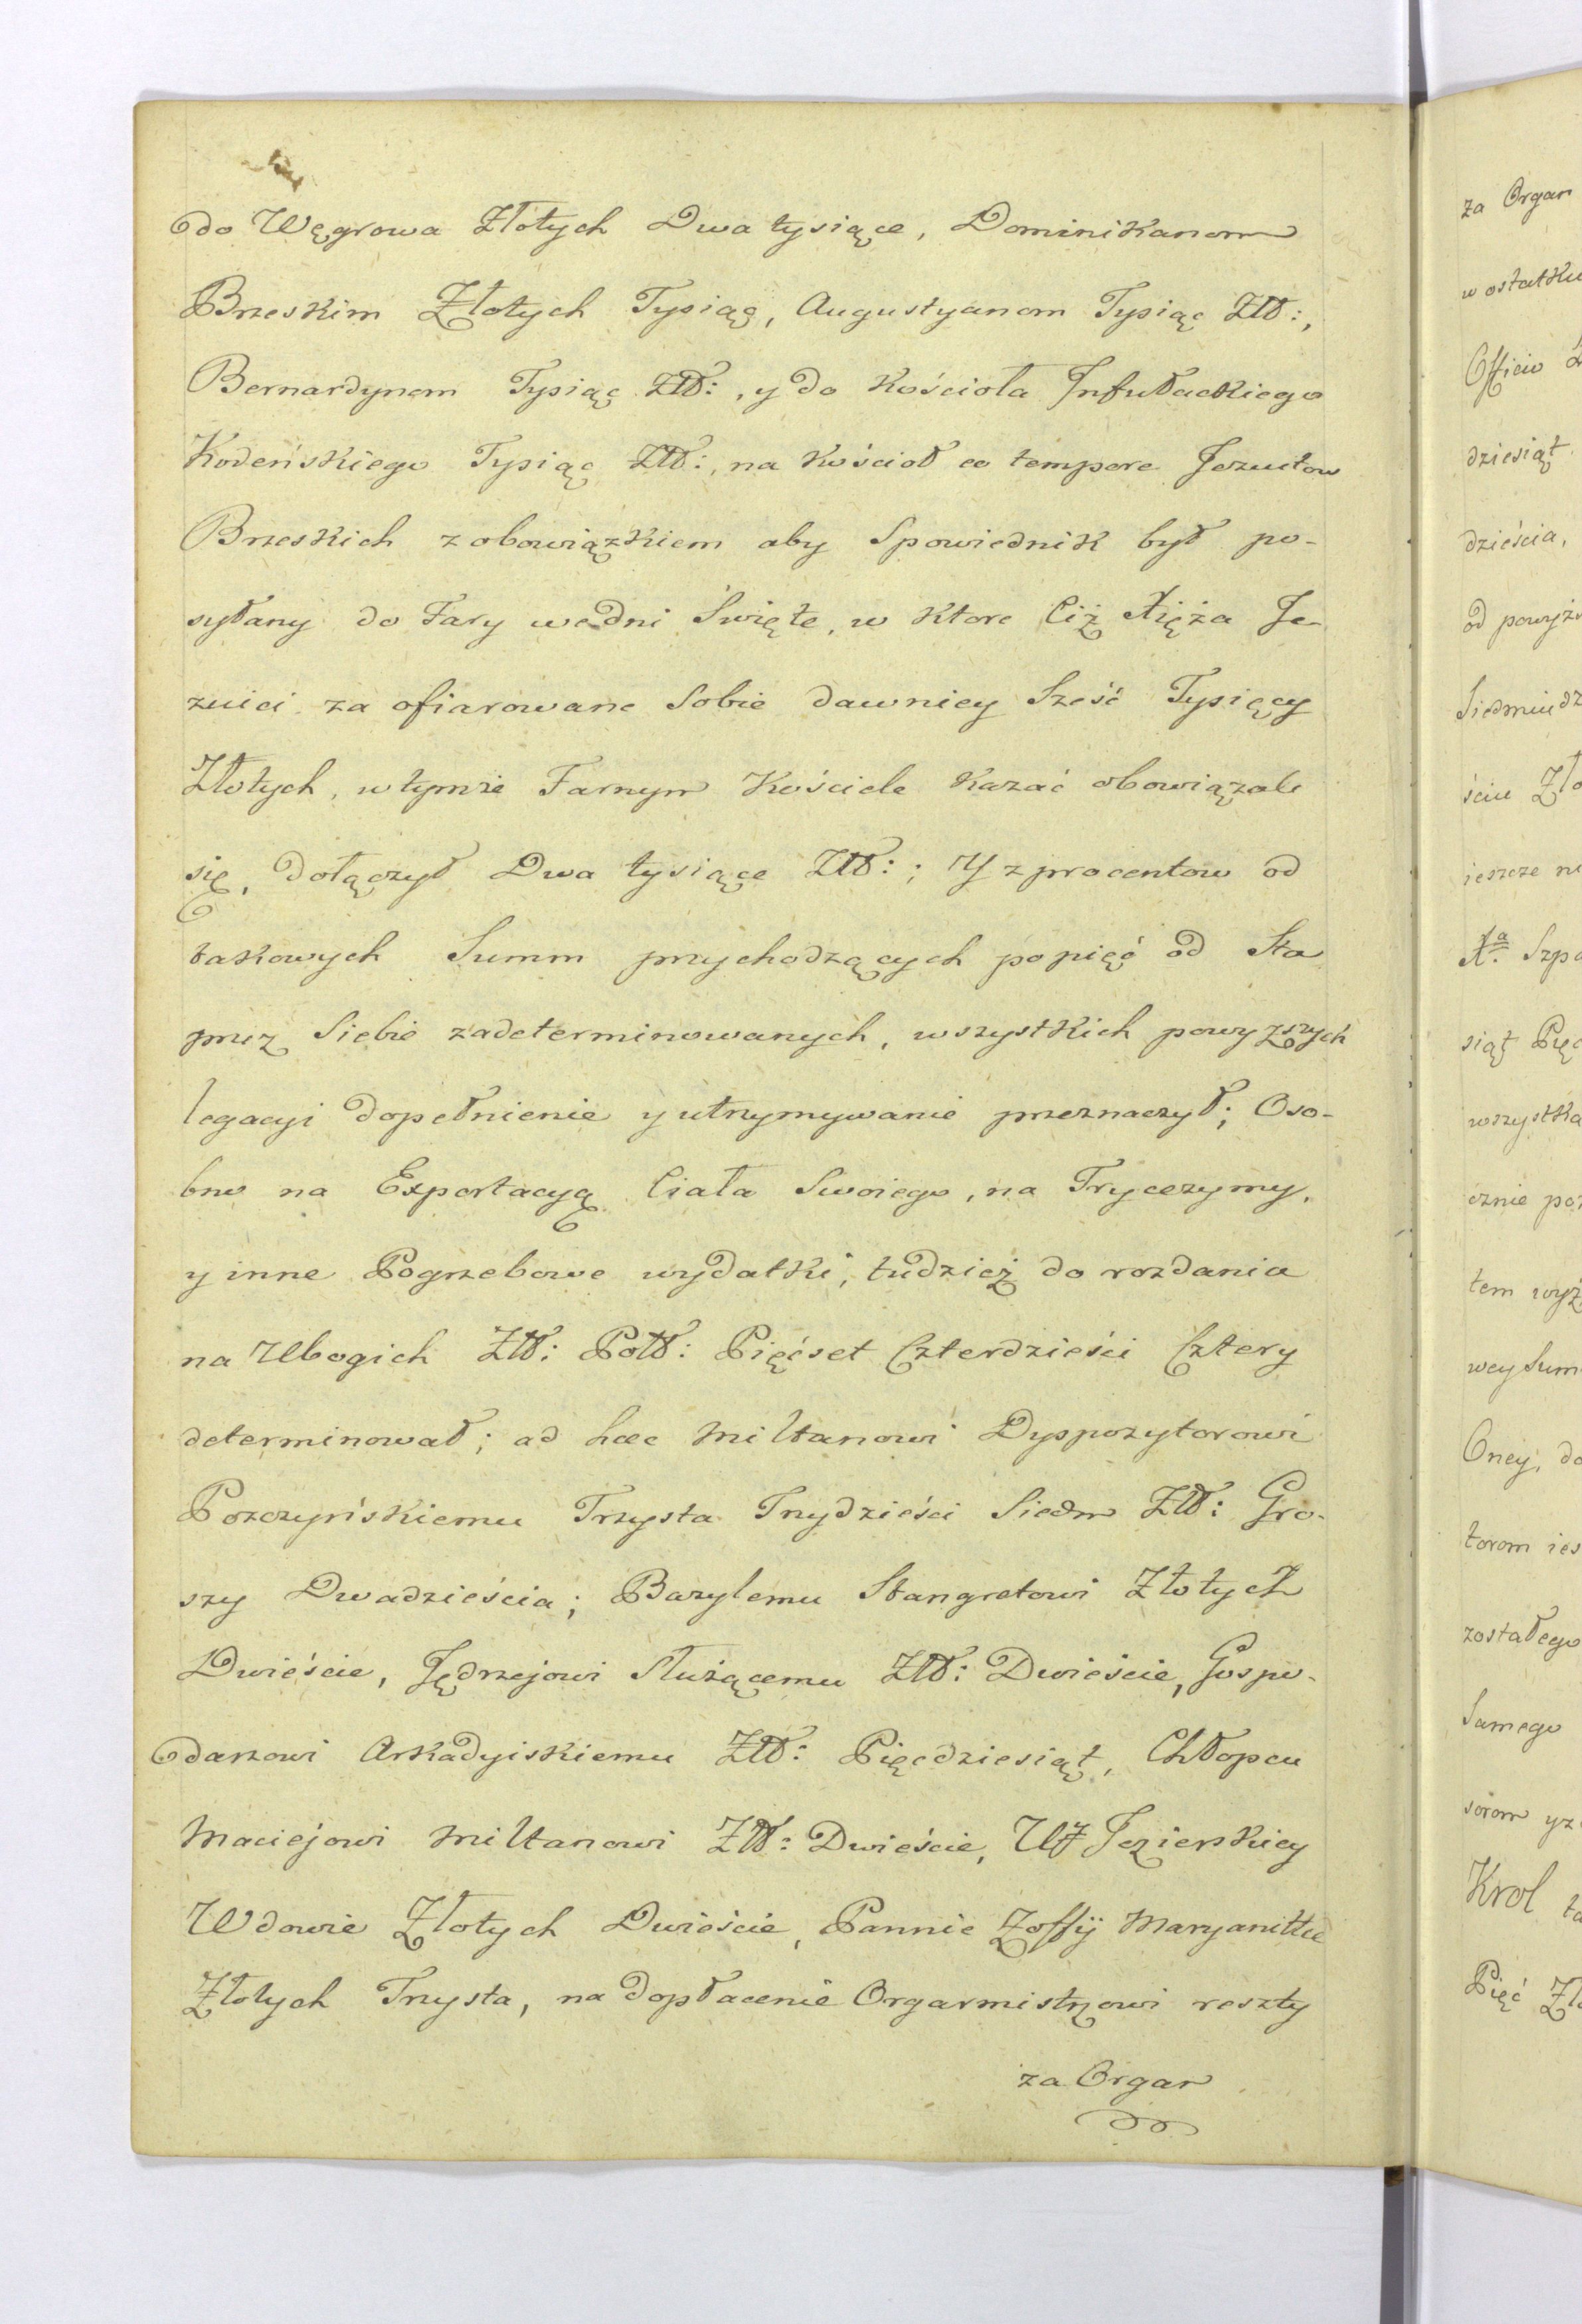 do Węgrowa Złotych Dwa tysiące, Dominikanom
Brzeskim Złotych Tysiąc, Augustyanom Tysiąc Złł:,
Bernardynom Tysiąc Złł:, y do Kościoła Infułackiego
Kodeńskiego Tysiąc Złł:, na Kościoł eo tempore Jezuitow
Brzeskich z obowiązkiem aby Spowiednik był po-
syłany do Fary we dni Święte, w ktore Ciż Xięża Je-
zuici za ofiarowane Sobie dawniey Sześć Tysięcy
Złotych, w tymże Farnym Kościele Kazać obowiązali
się, dołączył Dwa tysiące Złł:; Y z procentow od
takowych Summ przychodzących po pięć od Sta
przez Siebie zadeterminowanych, wszystkich powyższych
legacyi dopełnienie y utrzymywanie przeznaczył; Oso-
bno na Exportacyą Ciała Swoiego, na Trycezymy,
y inne Pogrzebowe wydatki, tudzież do rozdania
na Ubogich Złł: Poll: Pięćset Czterdzieści Cztery
determinował; ad haec Miltanowi Dyspozytorowi
Poczczyńskiemu Trzysta Trzydzieści Siedm Złł: Gro-
szy Dwadzieścia; Bazylemu Stangretowi Złotych
Dwieście, Jędrzejowi Służącemu Złł: Dwieście, Gospo-
darzowi Arkadyiskiemu Złł: Pięcdziesiąt, Chłopcu
Maciejowi Miltanowi Złł: Dwieście, UJ Jezierskiey
Wdowie Złotych Dwieście, Pannie Zoffij Maryanitce
Złotych Trzysta, na dopłacenie Organmistrzowi reszty
za Organ
za Organ
w ostatku
Officio
dziesiąt
dzieścia,
od powyż
Siedmiudz
ściu Zło
ieszcze
Xa. Szp
siąt Pięć
wszystka
cznie
tem wyż
wey Sum
Oney, do
torom ies
zostałego
Samego
sorom yz
Krol
Pięć Zł